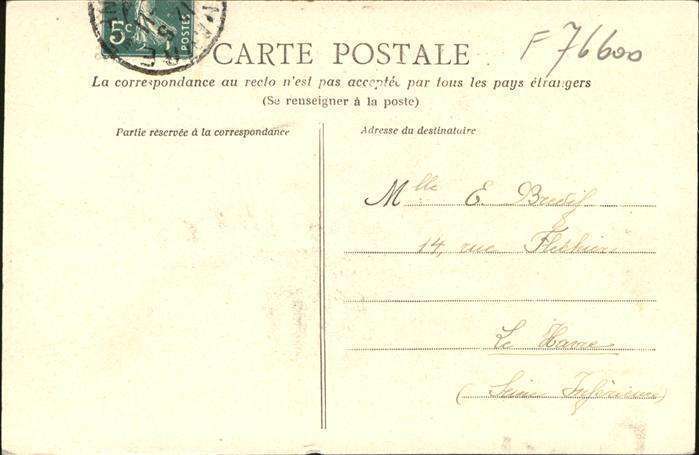 5c POSTES
CARTE POSTALE
F 76600
La correspondance au recto n'est pas acceptée par tous les pays étrangers
(Se renseigner à la poste)
Partie réservée à la correspondance
Adresse du destinataire
Mlle E. Bredif
14, rue Fléchier
Le Havre
(Seine Inférieure)